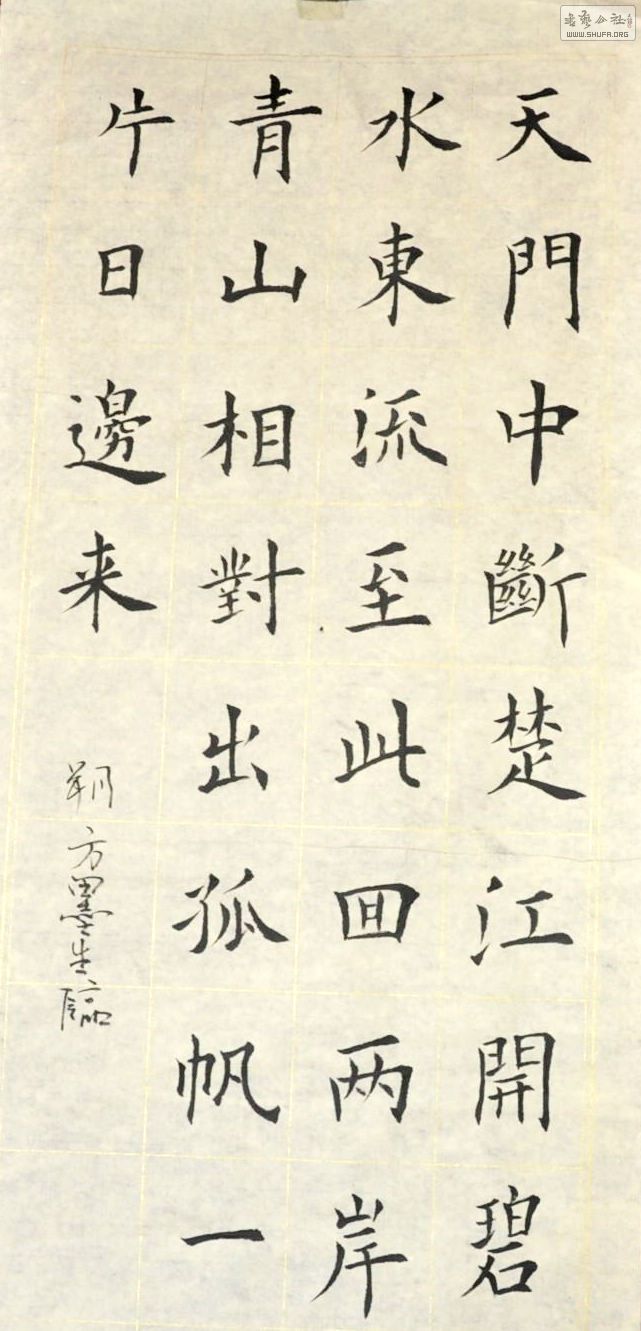 天門中斷楚江開碧
水東流至此回两岸
青山相對出孤帆一
片日邊来
朔方墨生臨
書藝公社
WWW.SHUFA.ORG